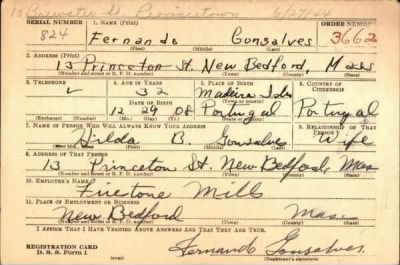 10 Brewster St. Provincetown 6/27/44
SERIAL NUMBER 1. NAME (Print) ORDER NUMBER
824 Fernando Gonsalves 3662
(First) (Middle) (Last)
2. ADDRESS (Print)
13 Princeton St. New Bedford Mass
(Number and street or R. F. D. number) (Town) (County) (State)
3. TELEPHONE 4. AGE IN YEARS 5. PLACE OF BIRTH 6. COUNTRY OF CITIZENSHIP
32 Madeira Isls
DATE OF BIRTH
12 29 08 Portugal Portugal
(Exchange) (Number) (Mo.) (Day) (Yr.) (State or country)
7. NAME OF PERSON WHO WILL ALWAYS KNOW YOUR ADDRESS 8. RELATIONSHIP OF THAT PERSON
Hilda B. Gonsalves Wife
(Mr., Mrs., Miss) (First) (Middle) (Last)
9. ADDRESS OF THAT PERSON
13 Princeton St. New Bedford, Mass
(Number and street or R. F. D. number) (Town) (County) (State)
10. EMPLOYER'S NAME
Firestone Mills
11. PLACE OF EMPLOYMENT OR BUSINESS
New Bedford Mass.
(Number and street or R. F. D. number) (Town) (County) (State)
I AFFIRM THAT I HAVE VERIFIED ABOVE ANSWERS AND THAT THEY ARE TRUE.
REGISTRATION CARD
D. S. S. Form 1 Fernando Gonsalves
(Registrant's signature)